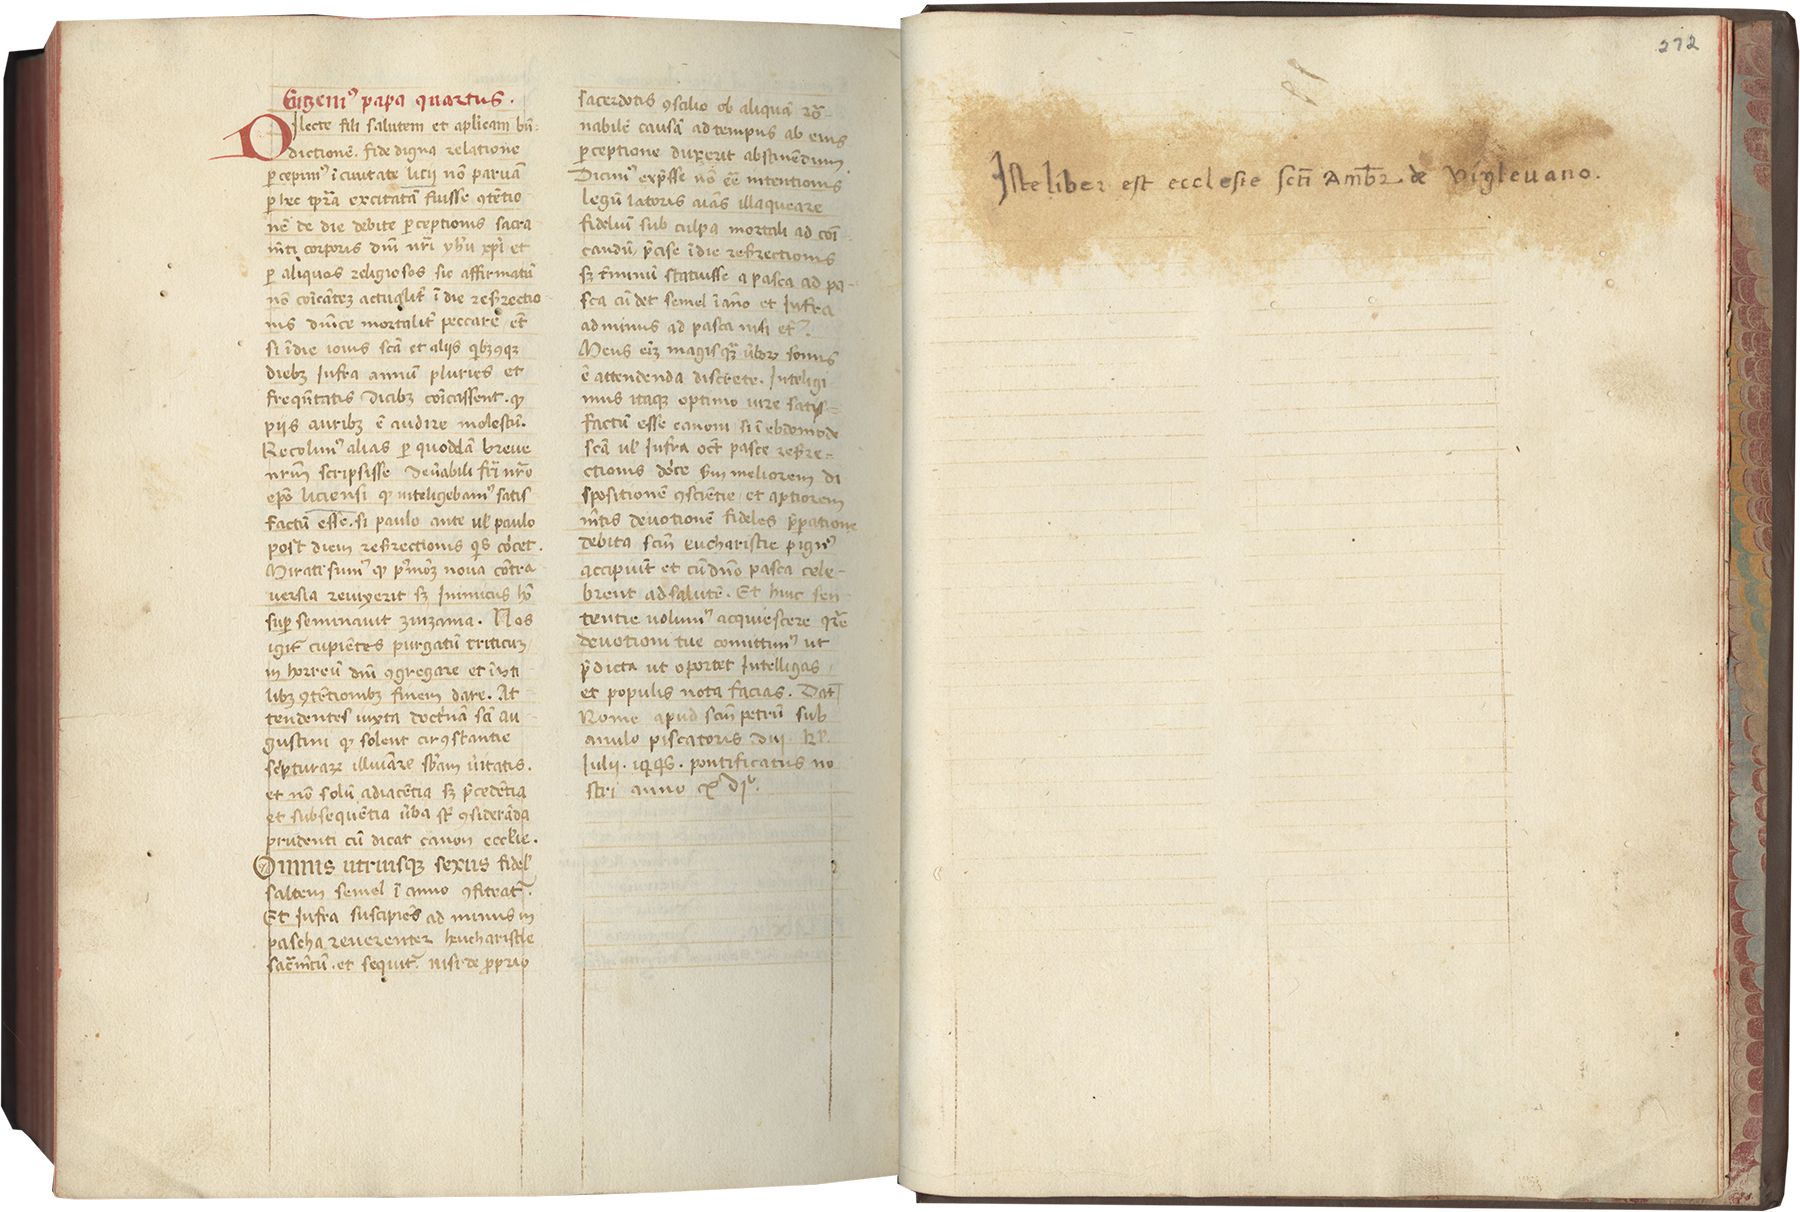 Eugeni⁹ papa quartus.
Dilecte fili salutem et aplicam bn̄-
dictionē. fide digna relatione
ꝑcepim⁹ ī ciuitate licii nō paruā
ꝑ hec tꝑa excitatā fuisse ꝯtētio
nē de die debite ꝑceptionis sacra
mēti corporis dn̄i nr̄i yhu xp̄i et
ꝑ aliquos religiosos sic affirmatū
nō cōicātes actualit̄ ī die resrectio
nis dn̄ice mortalit̄ peccare et̄
si ī die iouis scā et aliis qibꝫcꝫ
diebꝫ infra annū pluries et
freqn̄tatis dicibꝫ cōicassent. qͦ
piis auribꝫ ē audire molestū.
Recolim⁹ alias ꝑ quoddā breue
nr̄m scripsisse venābili frī nr̄o
epō liciensi qͦ inteligebam⁹ satis
factū esse. si paulo ante ul̄ paulo
post diem resrectionis qis cōicet.
Mirati sum⁹ qͦ nova cōtra
uersia reuixerit sꝫ inimicus hō
suꝑ seminauit zinzania. Nos
igit̄ cupiētes purgatū triticuꝫ
in horreū dn̄i ꝯgregare et
libꝫ ꝯtētionibꝫ finem dare. At
tendentes iuxta doctnā scī au
gustini qͦ solent circūstantie
scripturarꝫ illuīare sn̄iam ūitatis.
et nō solū adiacētia sꝫ p̄cedētia
et subsequētia ūba st̄ ꝯsiderāda
prudenti cū dicat canon eccl̄ie.
Omnis utriusqꝫ sexus fidel̄
saltem semel ī anno ꝯfiteat̄.
Et infra suscipiēs ad minus in
pascha reuerenter heucharistie
sacm̄tū. et sequit̄. nisi de ꝓprio
sacerdotis ꝯsilio ob aliquā rō-
nabilē causā ad tempus ab eius
ꝑceptione duxerit abstinēdum
Dicim⁹ exp̄sse nō eē intentionis
legū latoris aīas illaqueare
fideliū sub culpa mortali ad cōi
candū p̄cise ī die resrectionis
sꝫ t̄minū statuisse a pasca ad pa-
sca cū det semel ī āno et infra
ad minus ad pasca nisi et⁊.
Mens eīꝫ magisqꝫ ūborꝫ sonus
ē attendenda discrete. Inteligi
mus itaqꝫ optimo iure satis-
factū esse canoni si ī ebdomode
scā ul̄ infra oct̄ pasce resre-
ctionis dōice sm̄ meliorem di
spositionē ꝯsciētie et aptiorem
mētis deuotionē fideles p̄ꝑatione
debita scm̄ eucharistie pign⁹
accipiūt et cū dn̄o pasca cele-
brent ad salutē. Et huic sen
tentie uolum⁹ acquiescere qr̄e
deuotioni tue comittim⁹ ut
p̄dicta ut oportet intelligas
et populis nota facias. Dat̄
Rome apud scm̄ petrū sub
anulo piscatoris Dvi kl̄.
Iulii. pontificatus no
stri anno
272
Iste liber est ecclesie scti Ambr de Viglevano.